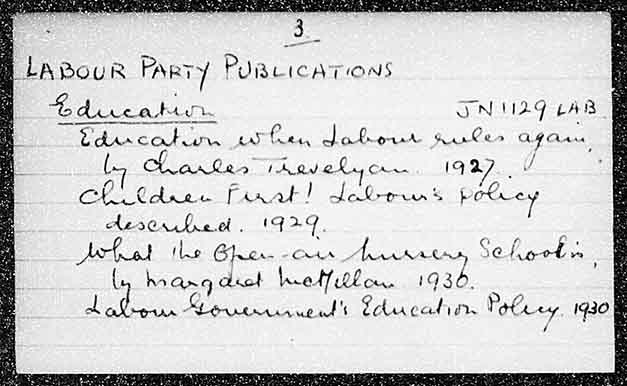 3.
LABOUR PARTY PUBLICATIONS
Education JN1129 LAB
Education when Labour rules again,
by Charles Trevelyan. 1927.
Children First! Labour's policy
described. 1929.
What the Open-air Nursery School is,
by Margaret McMillan 1930.
Labour Government's Education Policy. 1930